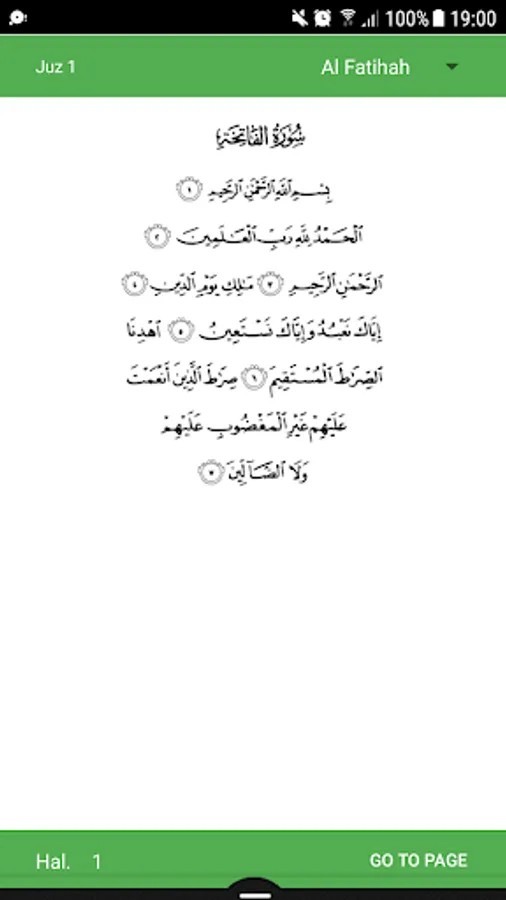 100% 19:00
Juz 1 Al Fatihah
سُورَةُ الفَاتِحَةِ
بِسْمِ ٱللَّهِ ٱلرَّحْمَٰنِ ٱلرَّحِيمِ ١
ٱلْحَمْدُ لِلَّهِ رَبِّ ٱلْعَٰلَمِينَ ٢
ٱلرَّحْمَٰنِ ٱلرَّحِيمِ ٣ مَٰلِكِ يَوْمِ ٱلدِّينِ ٤
إِيَّاكَ نَعْبُدُ وَإِيَّاكَ نَسْتَعِينُ ٥ ٱهْدِنَا
ٱلصِّرَٰطَ ٱلْمُسْتَقِيمَ ٦ صِرَٰطَ ٱلَّذِينَ أَنْعَمْتَ
عَلَيْهِمْ غَيْرِ ٱلْمَغْضُوبِ عَلَيْهِمْ
وَلَا ٱلضَّآلِّينَ ٧
Hal. 1 GO TO PAGE